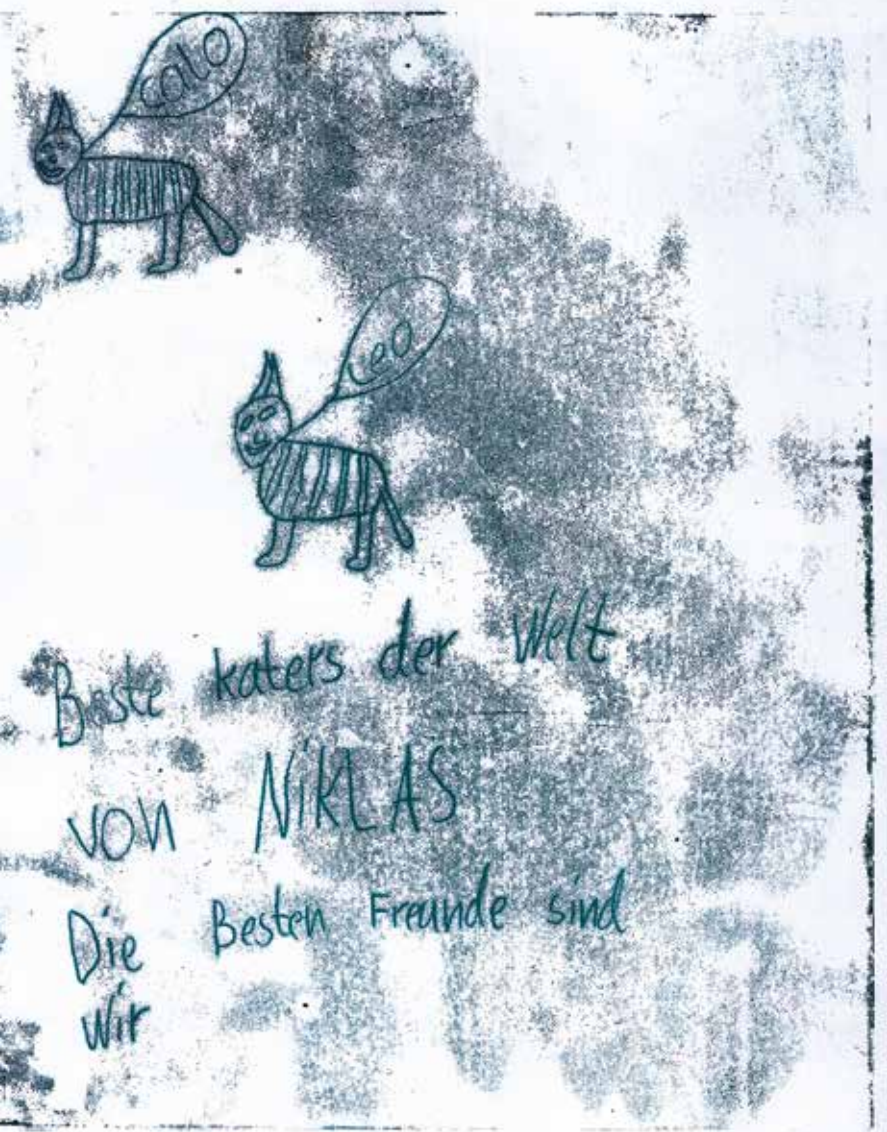 Salo
Leo
Beste katers der Welt
von NiKLAS
Die Besten Freunde sind
wir